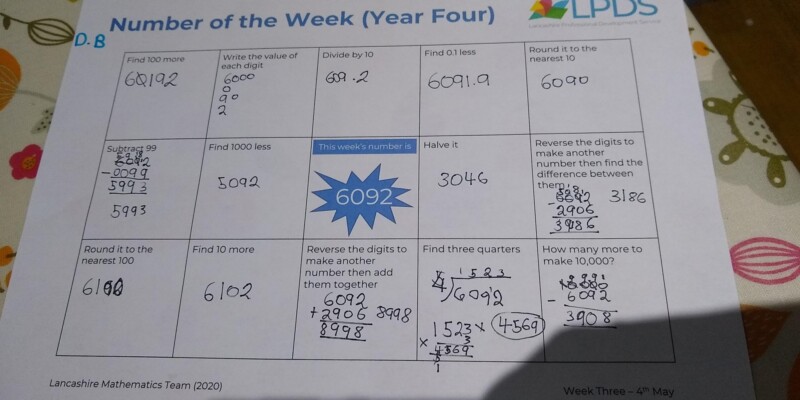 Number of the Week (Year Four)
LPDS
Lancashire Professional Development Service
D.B
Find 100 more
Write the value of
each digit
Divide by 10
Find 0.1 less
Round it to the
nearest 10
6000
0
90
2
609.2
6091.9
6090
Subtract 99
6092
-0099
5993
5993
Find 1000 less
5092
This week's number is
6092
Halve it
3046
Reverse the digits to
make another
number then find the
difference between
them
6092
- 2906
3186
3186
Round it to the
nearest 100
Find 10 more
6102
Reverse the digits to
make another
number then add
them together
6092
+2906 8998
8998
Find three quarters
1523
4)6092
1523
× 3
4569
4569
How many more to
make 10,000?
10000
- 6092
3908
Lancashire Mathematics Team (2020)
Week Three – 4th May